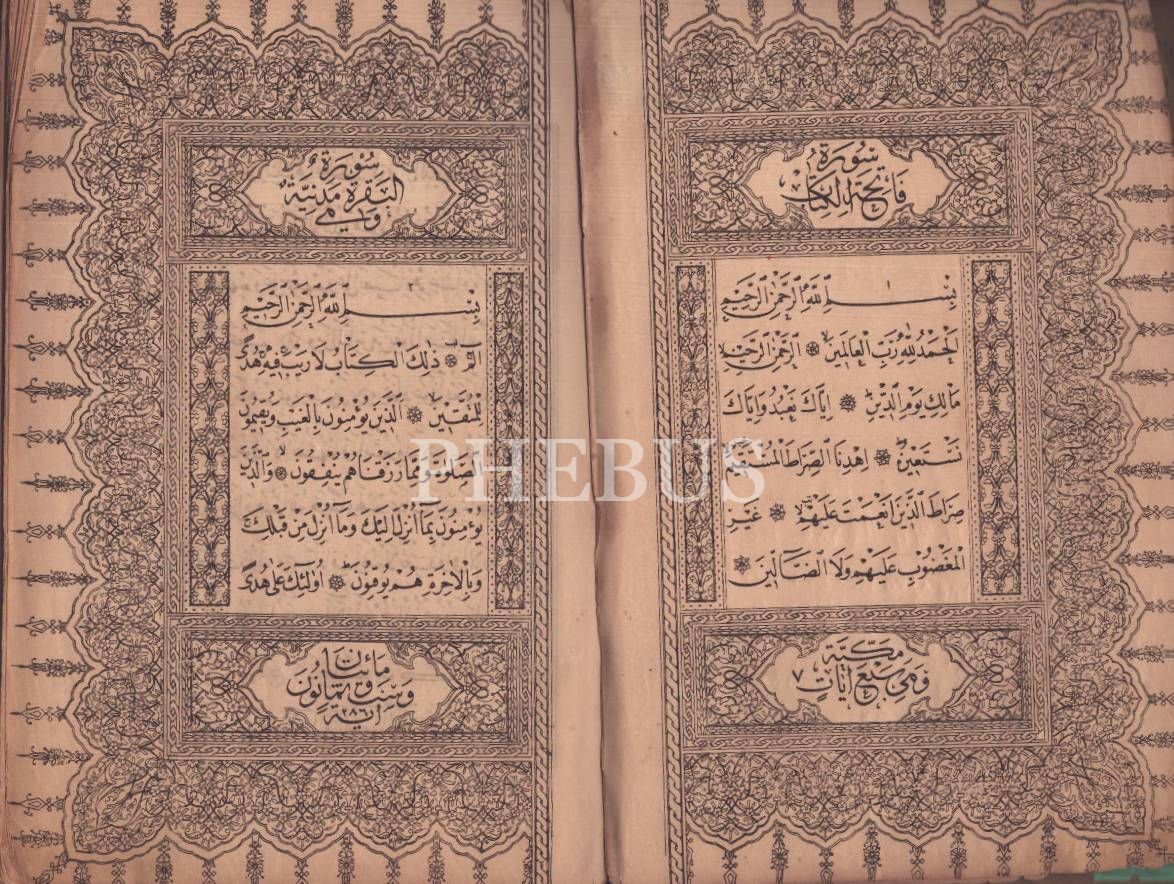 سُورَةُ
فَاتِحَةِ الْكِتَابِ
١
بِسْمِ اللَّهِ الرَّحْمٰنِ الرَّحِيمِ
اَلْحَمْدُ لِلّٰهِ رَبِّ الْعَالَمِينَ ۞ اَلرَّحْمٰنِ الرَّحِيمِ
مَالِكِ يَوْمِ الدِّينِ ۞ اِيَّاكَ نَعْبُدُ وَاِيَّاكَ
نَسْتَعِينُ ۞ اِهْدِنَا الصِّرَاطَ الْمُسْتَقِيمَ
صِرَاطَ الَّذِينَ اَنْعَمْتَ عَلَيْهِمْ ۞ غَيْرِ
الْمَغْضُوبِ عَلَيْهِمْ وَلَا الضَّالِّينَ ۞
مَكِّيَّةٌ
وَهِيَ سَبْعُ اٰيَاتٍ ٧
سُورَةُ
الْبَقَرَةِ مَدَنِيَّةٌ
وَهِيَ
٢
بِسْمِ اللَّهِ الرَّحْمٰنِ الرَّحِيمِ
الٓمٓ ۞ ذٰلِكَ الْكِتَابُ لَا رَيْبَ فِيهِ هُدًى
لِلْمُتَّقِينَ ۞ اَلَّذِينَ يُؤْمِنُونَ بِالْغَيْبِ وَيُقِيمُونَ
الصَّلٰوةَ وَمِمَّا رَزَقْنَاهُمْ يُنْفِقُونَ ۞ وَالَّذِينَ
يُؤْمِنُونَ بِمَٓا اُنْزِلَ اِلَيْكَ وَمَٓا اُنْزِلَ مِنْ قَبْلِكَ
وَبِالْاٰخِرَةِ هُمْ يُوقِنُونَ ۞ اُولٰٓئِكَ عَلٰى هُدًى
مِائَتَانِ
وَسِتٌّ وَثَمَانُونَ
اٰيَةً ٢٨٦
PHEBUS